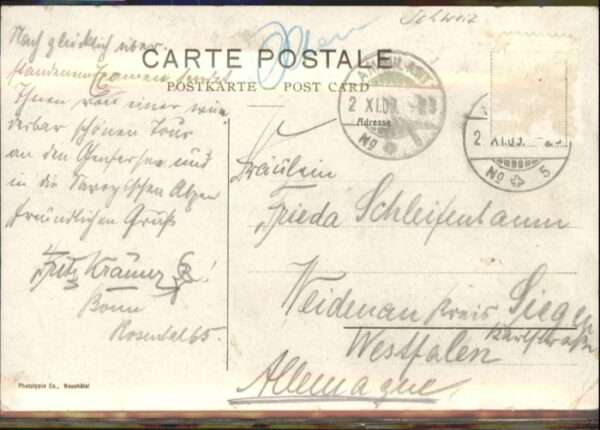 Schweiz
CARTE POSTALE
POSTKARTE POST CARD
Nach glücklich über-
standenem Examen sendet
Ihnen von einer wun
derbar schönen Tour
an den Genfersee und
in die Savoyischen Alpen
freundlichen Gruß
Fritz Krämer
Bonn
Rosental 65.
AMBULANT
2 XI.09
No 5
2 XI.09
No 5
Adresse
Fräulein
Frieda Schleifenbaum
Weidenau Kreis Siegen
Karlstraße
Westfalen
Allemagne
Phototypie Co., Neuchâtel